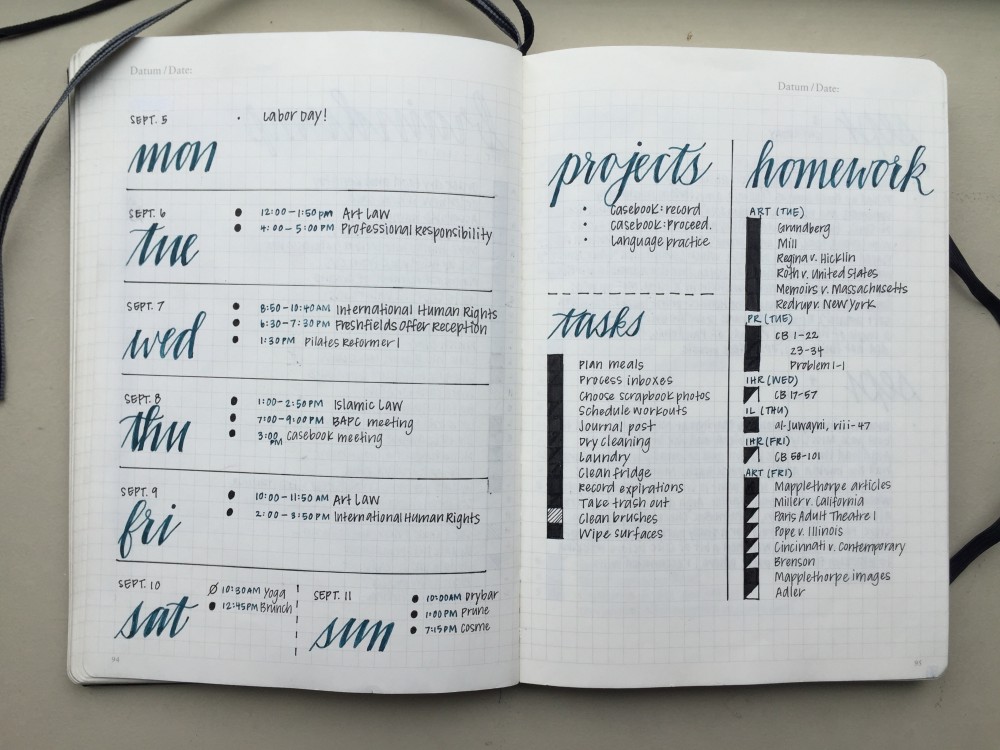 Datum / Date:
SEPT. 5
• Labor Day!
mon
SEPT. 6
tue
• 12:00-1:50 PM Art Law
• 4:00-5:00 PM Professional Responsibility
SEPT. 7
wed
• 8:50-10:40 AM International Human Rights
• 6:30-7:30 PM Freshfields Offer Reception
• 1:30 PM Pilates Reformer I
SEPT. 8
thu
• 1:00-2:50 PM Islamic Law
• 7:00-9:00 PM BAPC meeting
• 3:00 PM Casebook meeting
SEPT. 9
fri
• 10:00-11:50 AM Art Law
• 2:00-3:50 PM International Human Rights
SEPT. 10
sat
10:30 AM Yoga
• 12:45 PM Brunch
SEPT. 11
sun
• 10:00 AM Drybar
• 1:00 PM Prune
• 7:15 PM Cosme
94
Datum / Date:
projects
• Casebook: record
• Casebook: Proceed.
• Language practice
tasks
Plan meals
Process inboxes
Choose scrapbook photos
Schedule workouts
Journal post
Dry cleaning
Laundry
Clean fridge
Record expirations
Take trash out
Clean brushes
Wipe surfaces
homework
ART (TUE)
Grundberg
Mill
Regina v. Hicklin
Roth v. United States
Memoirs v. Massachusetts
Redrup v. New York
PR (TUE)
CB 1-22
23-34
Problem 1-1
IHR (WED)
CB 17-57
IL (THU)
al-Juwayni, viii-47
IHR (FRI)
CB 58-101
ART (FRI)
Mapplethorpe articles
Miller v. California
Paris Adult Theatre I
Pope v. Illinois
Cincinnati v. Contemporary
Brenson
Mapplethorpe images
Adler
95